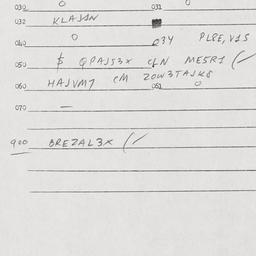 030 0 031 0
032 KLAJAN
040 0 034 PLRE, V1S
050 $ QPAJS3X CLN ME5R1 (✓
060 HAJVM7 CM ZOW3TAJK8 061 0
070 —
900 BREZAL3X (✓